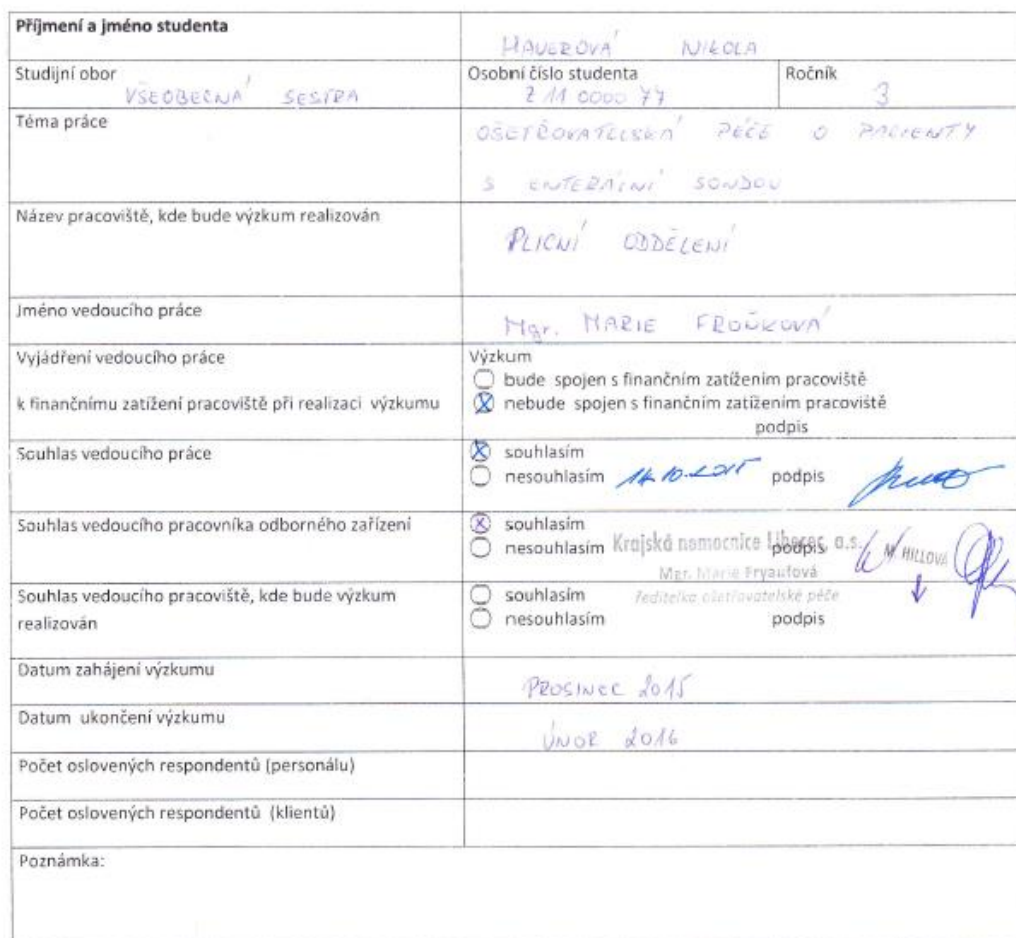 Příjmení a jméno studenta
HAUEROVÁ NIKOLA
Studijní obor
VŠEOBECNÁ SESTRA
Osobní číslo studenta
Z 11 0000 77
Ročník
3
Téma práce
OŠETŘOVATELSKÁ PÉČE O PACIENTY
S ENTERÁLNÍ SONDOU
Název pracoviště, kde bude výzkum realizován
PLICNÍ ODDĚLENÍ
Jméno vedoucího práce
Mgr. MARIE FROŇKOVÁ
Vyjádření vedoucího práce
k finančnímu zatížení pracoviště při realizaci výzkumu
Výzkum
bude spojen s finančním zatížením pracoviště
nebude spojen s finančním zatížením pracoviště
podpis
Souhlas vedoucího práce
souhlasím
nesouhlasím 14.10.2015 podpis
Souhlas vedoucího pracovníka odborného zařízení
souhlasím
nesouhlasím Krajská nemocnice Liberec, a.s. podpis
M HILLOVÁ
Mgr. Marie Fryaufová
ředitelka ošetřovatelské péče
Souhlas vedoucího pracoviště, kde bude výzkum
realizován
souhlasím
nesouhlasím podpis
Datum zahájení výzkumu
PROSINEC 2015
Datum ukončení výzkumu
ÚNOR 2016
Počet oslovených respondentů (personálu)
Počet oslovených respondentů (klientů)
Poznámka: